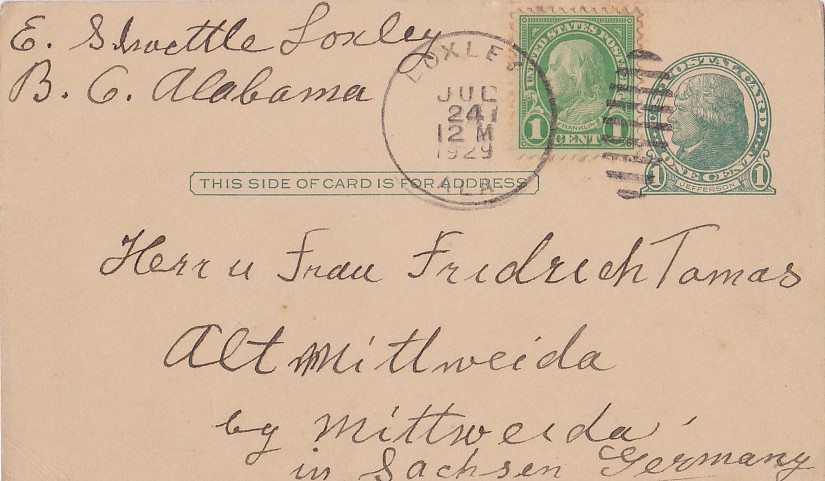 E. Schvettle Loxley
B. C. Alabama
LOXLEY
JUL
24
12 M
1929
ALA
UNITED STATES POSTAGE
FRANKLIN
1 CENT 1
POSTAL CARD
ONE CENT
1 JEFFERSON 1
THIS SIDE OF CARD IS FOR ADDRESS
Herr u Frau Fridrich Tomas
Alt Mittweida
by Mittweida
in Sachsen Germany